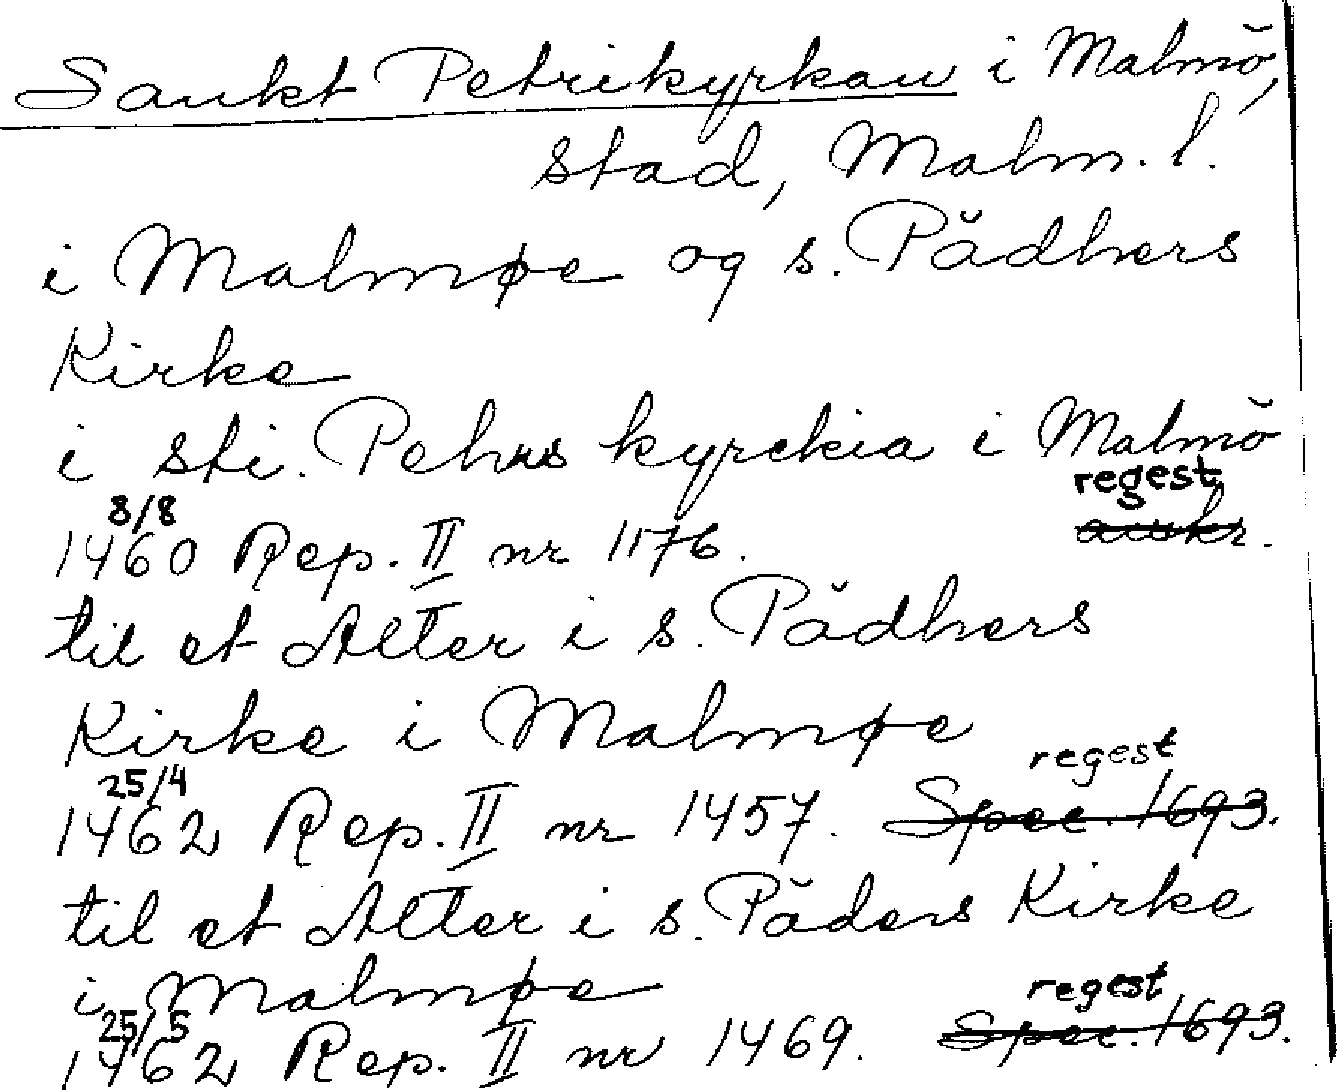 Sankt Petrikyrkan i Malmö,
stad, Malm. l.
i Malmøe og s. Pädhers
Kirke
i sti. Pehrs kyrckia i Malmö
8/8 regest
1460 Rep. II nr 1176. avskr.
til et Alter i s. Pädhers
Kirke i Malmøe
25/4 regest
1462 Rep. II nr 1457. Spec. 1693.
til et Alter i s. Päders Kirke
i Malmøe
25/5 regest
1462 Rep. II nr 1469. Spec. 1693.